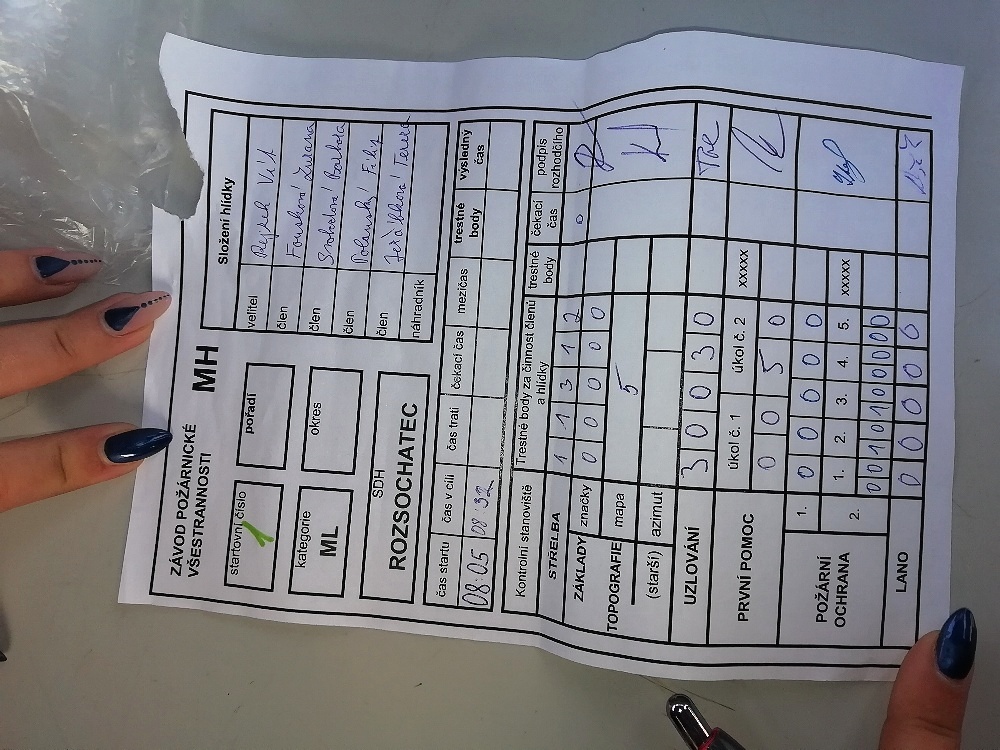 ZÁVOD POŽÁRNICKÉ
VŠESTRANNOSTI
MH
startovní číslo
1
pořadí
kategorie
ML
okres
SDH
ROZSOCHATEC
Složení hlídky
velitel Rypek Vít
člen
člen
člen Filip
člen Tereza
náhradník
čas startu čas v cíli čas trati čekací čas mezičas trestné body výsledný čas
08:05 08:32
Kontrolní stanoviště Trestné body za činnost členů a hlídky trestné body čekací čas podpis rozhodčího
STŘELBA 1 1 3 1 2 0
ZÁKLADY TOPOGRAFIE značky 0 0 0 0 0
mapa 5
(starší) azimut
UZLOVÁNÍ 3 0 0 3 0
PRVNÍ POMOC úkol č. 1 úkol č. 2 xxxxx
0 0 5 0
POŽÁRNÍ OCHRANA 1. 0 0 0 0 0
2. 1. 2. 3. 4. 5. xxxxx
0 0 10 10 0 0 0 0 0
LANO 0 0 0 0 0